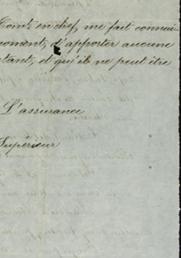 Com^t en chef, me fait connai-
moment, d'apporter aucune
tant, et qu'il ne peut être
L'assurance
Supérieur